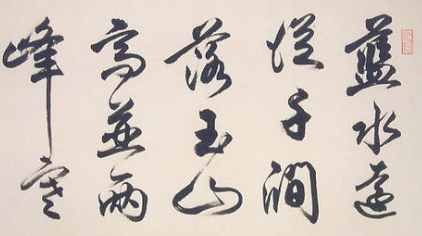 藍水遠
從千澗
落玉山
高並兩
峰寒